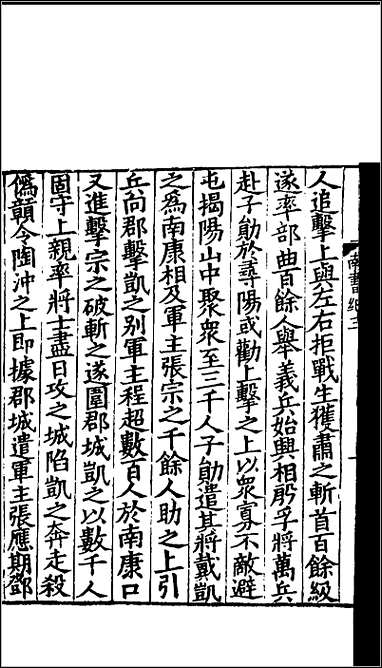 人追擊上與左右拒戰生獲肅之斬首百餘級
遂率部曲百餘人舉義兵始興相殷孚將萬兵
赴子勛於尋陽或勸上擊之上以衆寡不敵避
屯揭陽山中聚衆至三千人子勛遣其將戴凱
之爲南康相及軍主張宗之千餘人助之上引
兵向郡擊凱之別軍主程超數百人於南康口
又進擊宗之破斬之遂圍郡城凱之以數千人
固守上親率將士盡日攻之城陷凱之奔走殺
僞贛令陶沖之上即據郡城遣軍主張應期鄧